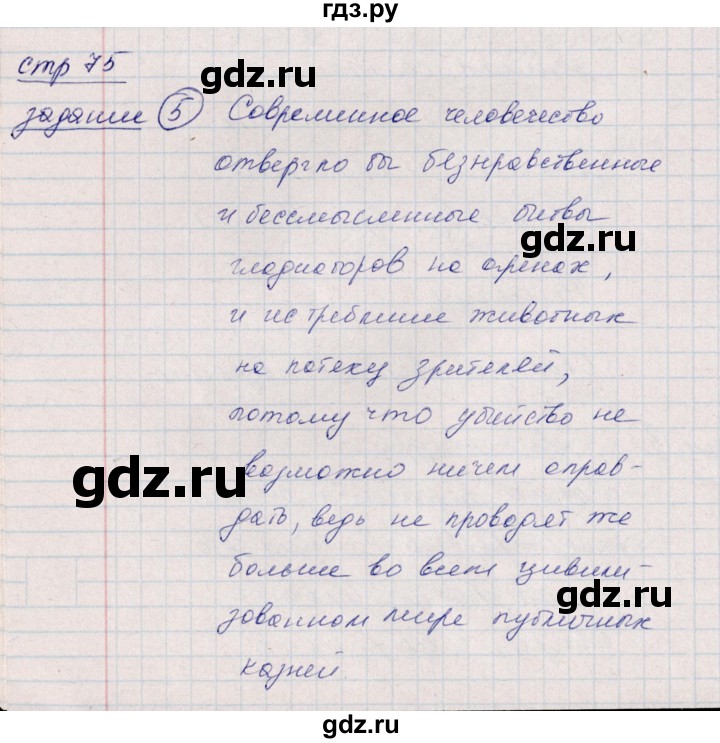 гдз.ру
стр 75
gdz.ru
gdz.ru
задание 5 Современное человечество
отвергло бы безнравственные
и бессмысленные битвы
gdz.ru
гладиаторов на аренах,
и истребление животных
на потеху зрителей,
потому что убийство не
gdz.ru
возможно ничем оправ-
дать, ведь не проводят же
больше во всем цивили-
gdz.ru
зованном мире публичных
казней
gdz.ru